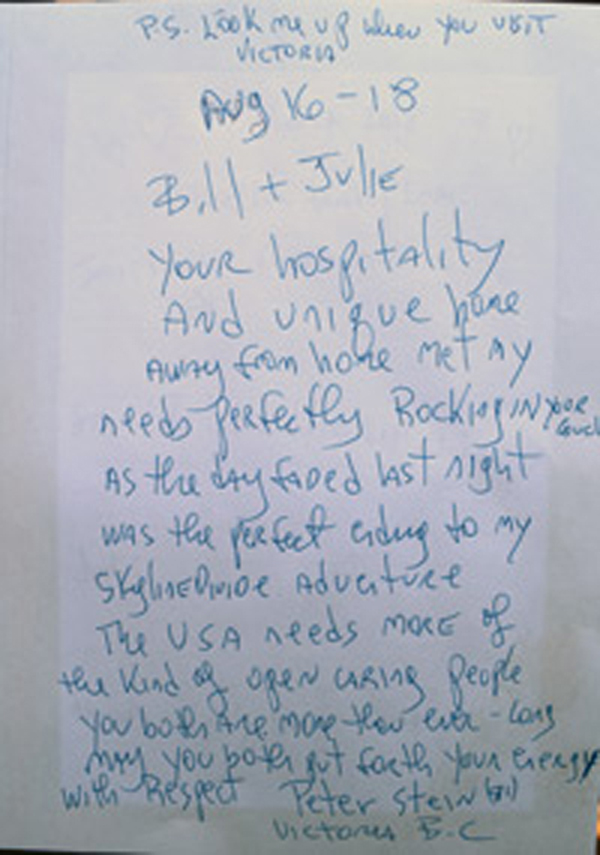 P.S. Look me up when you visit
Victoria
Aug 16-18
Bill + Julie
Your hospitality
And unique home
away from home met my
needs perfectly Rocking in your
As the day faded last night
was the perfect ending to my
Skyline Divide Adventure
The USA needs more of
the kind of open caring people
you both are more than ever - Long
may you both put forth your energy
with Respect Peter
Victoria B.C